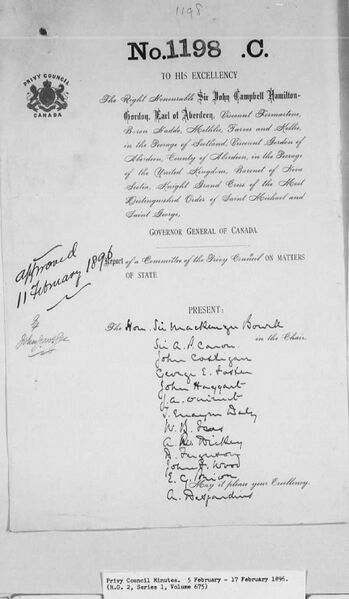 1198
No. 1198 .C.
PRIVY COUNCIL
CANADA
TO HIS EXCELLENCY
The Right Honourable Sir John Campbell Hamilton-
Gordon, Earl of Aberdeen, Viscount Formartine,
Baron Haddo, Methlic, Tarves and Kellie,
in the Peerage of Scotland, Viscount Gordon of
Aberdeen, County of Aberdeen, in the Peerage
of the United Kingdom, Baronet of Nova
Scotia, Knight Grand Cross of the Most
Distinguished Order of Saint Michael and
Saint George,
GOVERNOR GENERAL OF CANADA
approved
11 February 1896
Report of a Committee of the Privy Council on MATTERS
OF STATE
PRESENT:
The Hon. Sir Mackenzie Bowell
in the Chair
Sir A. P. Caron
John Costigan
George E. Foster
John Haggart
J. A. Ouimet
T. Mayne Daly
W. B. Ives
A. R. Dickey
Ferguson
John F. Wood
E. G. Prior
May it please your Excellency.
A. Desjardins
Privy Council Minutes. 5 February - 17 February 1896.
(R.G. 2, Series 1, Volume 675)